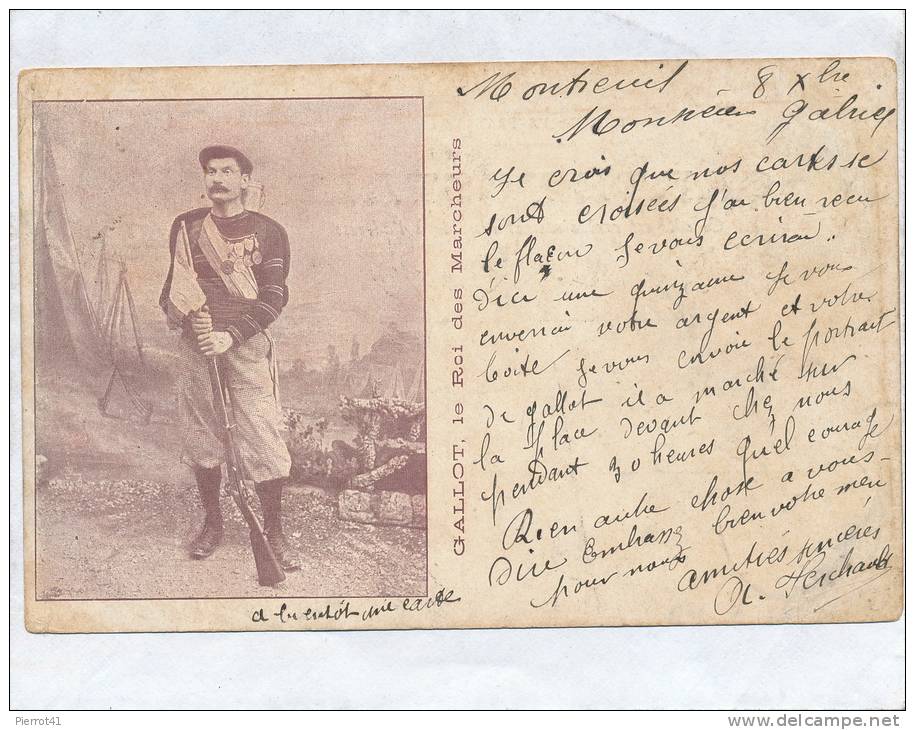 GALLOT, le Roi des Marcheurs
Montreuil 8 Xbre
Monsieur Gabriel
Je crois que nos cartes se
sont croisées j'ai bien recu
le flacon Je vous écrirai
d'ici une quinzaine Je vous
enverrai votre argent et votre
boite Je vous envoie le portrait
de gallot il a marché sur
la place devant chez nous
pendant 30 heures quel courage
Rien autre chose a vous
dire Embrassez bien votre
pour nous
amitiés sincères
a bientôt une carte
Pierrot41
www.delcampe.net